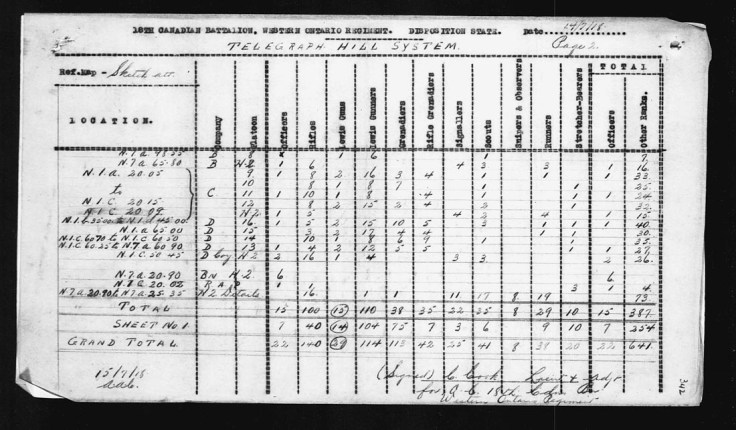 18TH CANADIAN BATTALION, WESTERN ONTARIO REGIMENT. DISPOSITION STATE. Date 14/7/18
TELEGRAPH HILL SYSTEM. Page 2
Ref.Map - Sketch att. TOTAL
LOCATION. Company Platoon Officers Rifles Lewis Guns Lewis Gunners Grenadiers Rifle Grenadiers Signallers Scouts Snipers & Observers Runners Stretcher-Bearers Officers Other Ranks.
B 8 1 6 1 7
N.7.a. 65.80 B H.Q. 1 6 4 3 3 1 16
N.1.a. 20.05 9 1 8 2 16 3 4 1 1 1 33
10 8 1 8 7 1 25
to C 11 1 10 1 8 4 1 1 24
N.1.C. 20.15 12 8 2 15 2 4 32
N.1.C. 20.09 H.Q. 1 5 4 2 4 1 15
D 16 1 5 2 15 10 5 3 1 1 40
N.1.a. 65.00 D 15 3 2 17 4 4 30
N.1.C. 60.70 to N.1.C. 60.50 D 14 10 1 8 6 9 1 35
N.1.C. 60.25 to N.7.a. 60.90 D 13 1 4 2 12 5 5 1 1 27
N.1.C. 50.45 D Coy H.Q. 2 16 1 4 3 3 2 26
N.7.a. 20.90 Bn H.Q. 6 6
N.1.C. 20.02 R.A.P. 1 1 3 1 4
N.7.a. 20.90 to N.7.a. 25.35 H.Q. Details 16 1 1 11 17 8 19 73
TOTAL 15 100 15 110 38 35 22 35 8 29 10 15 387
SHEET No 1 7 40 14 104 75 7 3 6 9 10 7 254
GRAND TOTAL 22 140 29 114 113 42 25 41 8 38 20 22 641
15/7/18 (Signed) C Cook Lieut & Adjr
for O.C. 18th Cdn. Bn
Western Ontario Regiment
342